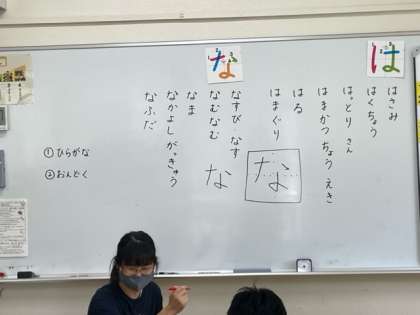 は
はさみ
はくちょう
はっとり さん
はまかつちょう えき
はる
はまぐり
な
なすび・なす
なむなむ
なま
なかよしがっきゅう
なふだ
な
な
①ひらがな
②おんどく